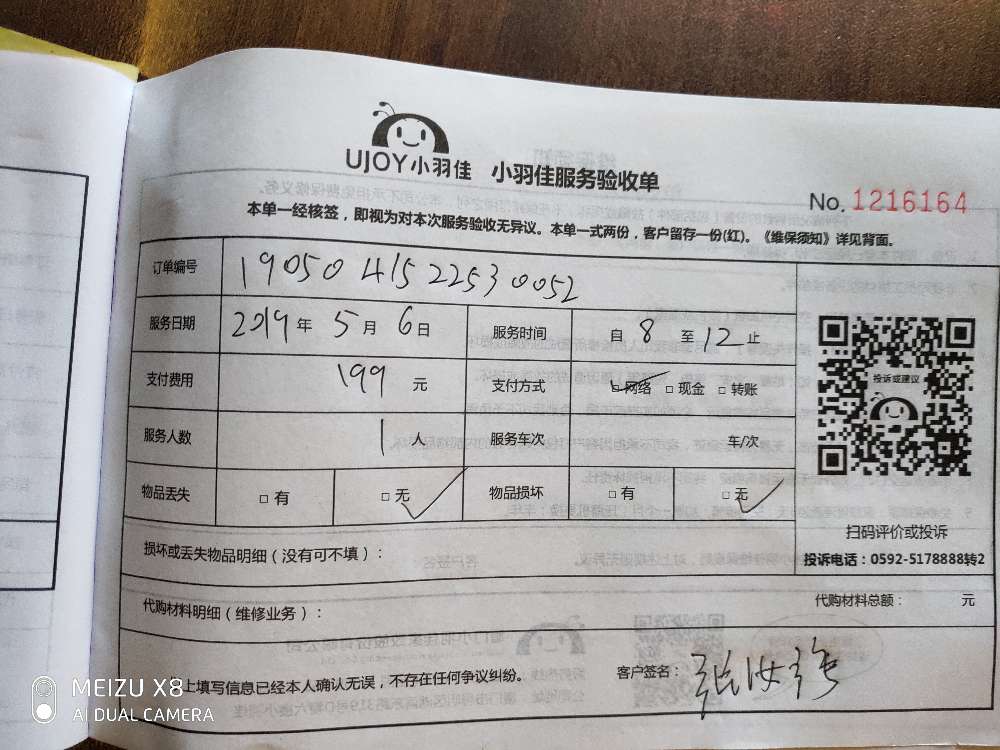 UJOY小羽佳 小羽佳服务验收单
No. 1216164
本单一经核签，即视为对本次服务验收无异议。本单一式两份，客户留存一份(红)。《维保须知》详见背面。
订单编号 1905041522530052
服务日期 2019年5月6日 服务时间 自8至12止
支付费用 199元 支付方式 □网络 □现金 □转账
服务人数 1人 服务车次 车/次
物品丢失 □有 □无 物品损坏 □有 □无
投诉或建议
扫码评价或投诉
投诉电话：0592-5178888转2
损坏或丢失物品明细（没有可不填）：
代购材料明细（维修业务）：
代购材料总额： 元
上填写信息已经本人确认无误，不存在任何争议纠纷。
客户签名：
MEIZU X8
AI DUAL CAMERA